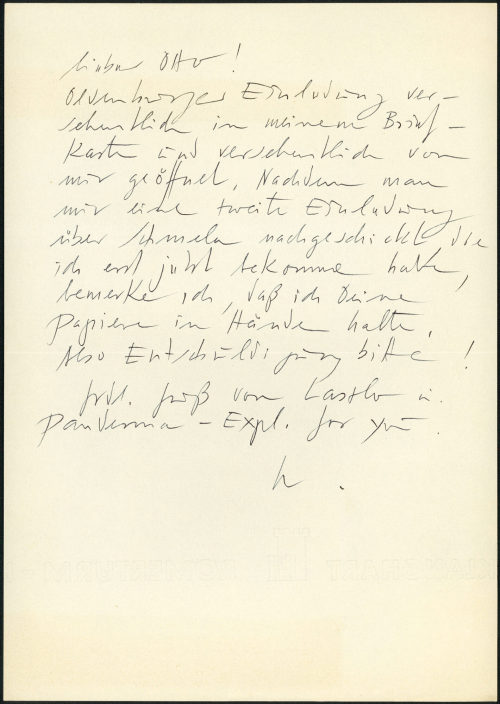 lieber Otto!
Oldenburger Einladung ver-
sehentlich in meinem Brief-
Kasten und versehentlich von
mir geöffnet. Nachdem man
mir eine zweite Einladung
über Schmela nachgeschickt, die
ich erst jetzt bekomme habe,
bemerke ich, daß ich Deine
Papiere in Händen halte.
Also Entschuldigung bitte!
frdl. Gruß von Laszlo u.
Panderma - Expl. for you.
h.